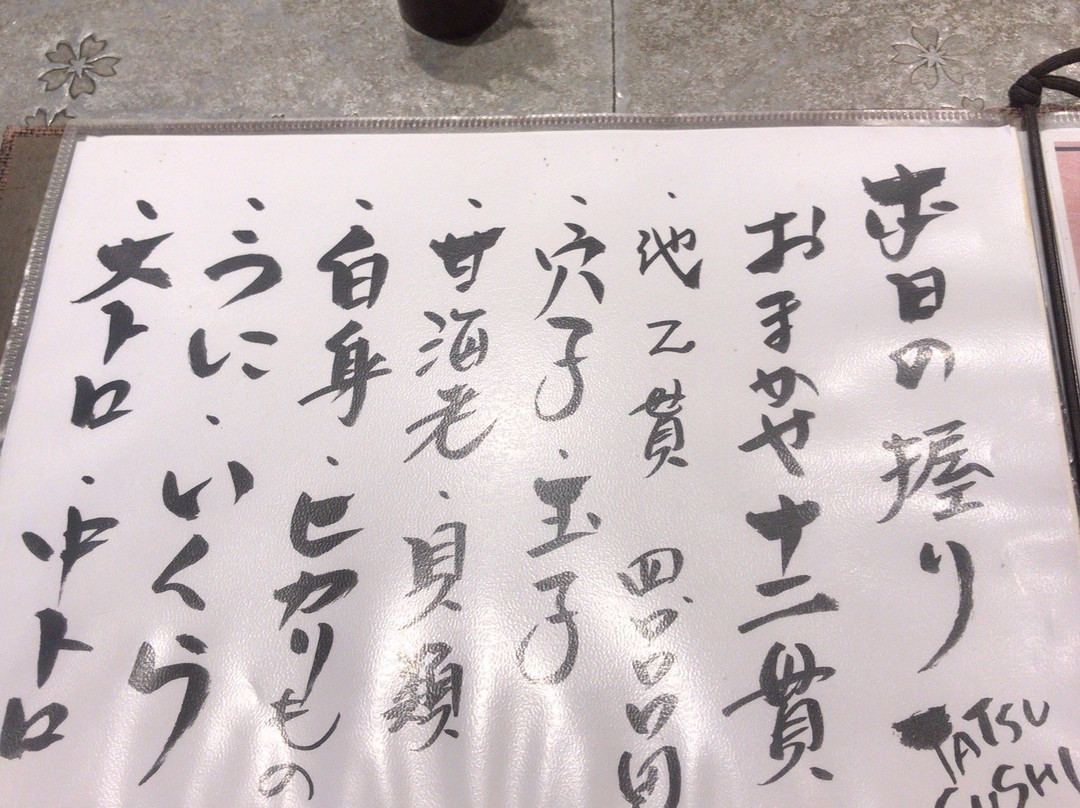 本日の握り
おまかせ十二貫
・他 乙貫 四〇〇〇円
・穴子・玉子
・甘海老・貝類
・白身・ヒカリもの
・うに・いくら
・大トロ・中トロ
TATSU
SUSHI